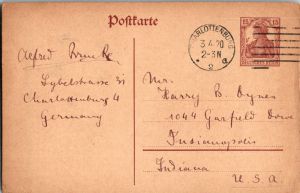 Postkarte
CHARLOTTENBURG
3.4.20
2-3N
2 a
15 15
Alfred
Sybelstrasse 31
Charlottenburg 4
Germany
Mr.
Harry B. Dynes
1044 Garfield Drive
Indianapolis
Indiana
U.S.A.